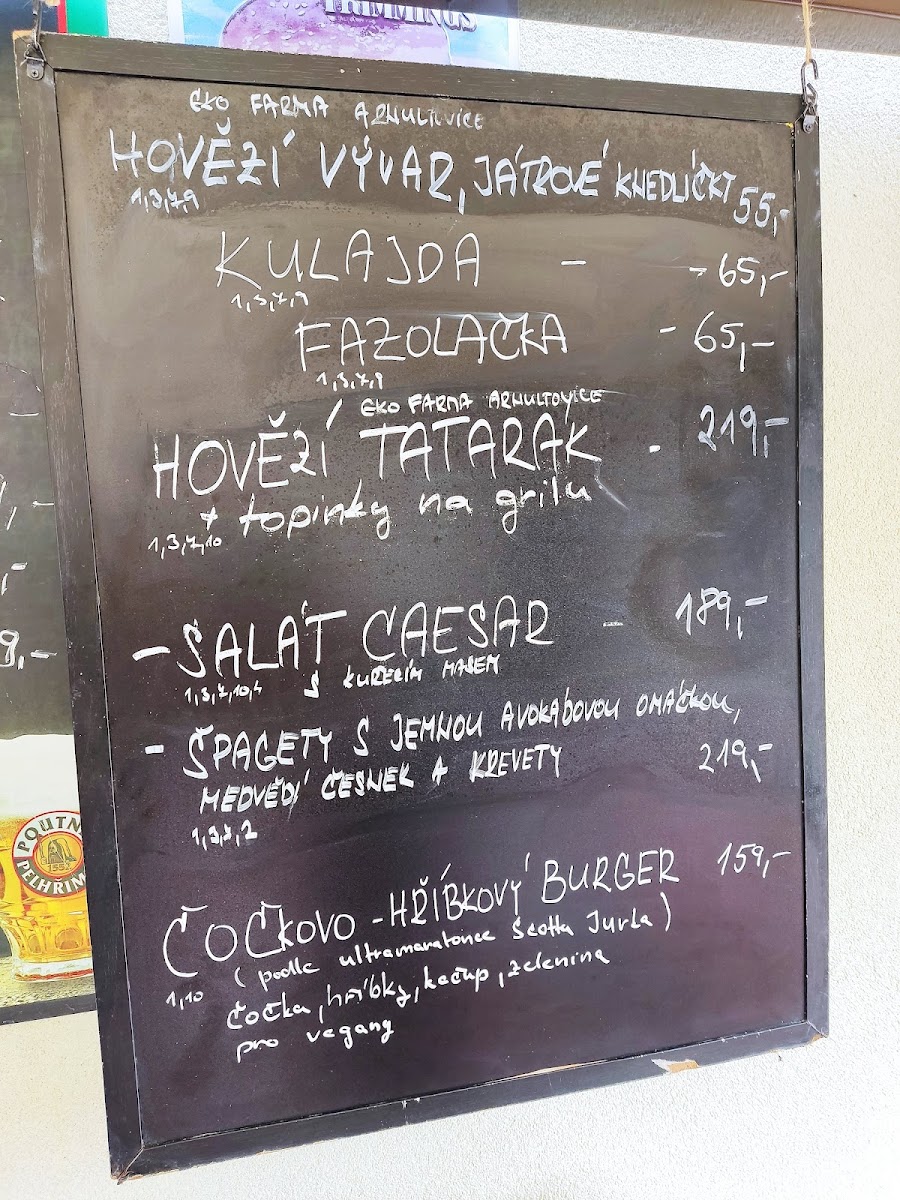 HEMMINGS
EKO FARMA ARNULTOVICE
HOVĚZÍ VÝVAR, JÁTROVÉ KNEDLÍČKY 55,-
1,3,7,9
KULAJDA - - 65,-
1,3,7,9
FAZOLAČKA - 65,-
1,3,7,9
EKO FARMA ARNULTOVICE
HOVĚZÍ TATARAK - 219,-
+ topinky na grilu
1,3,7,10
- SALÁT CAESAR - 189,-
1,3,7,10,4 S KUŘECÍM MASEM
- ŠPAGETY S JEMNOU AVOKÁDOVOU OMÁČKOU,
MEDVĚDÍ ČESNEK A KREVETY 219,-
1,3,7,2
ČOČKOVO - HŘÍBKOVÝ BURGER 159,-
(podle ultramaratonce Scotta Jurka)
1,10
čočka, hříbky, kečup, zelenina
pro vegany
9,-
POUTN
PELHŘIM
1552